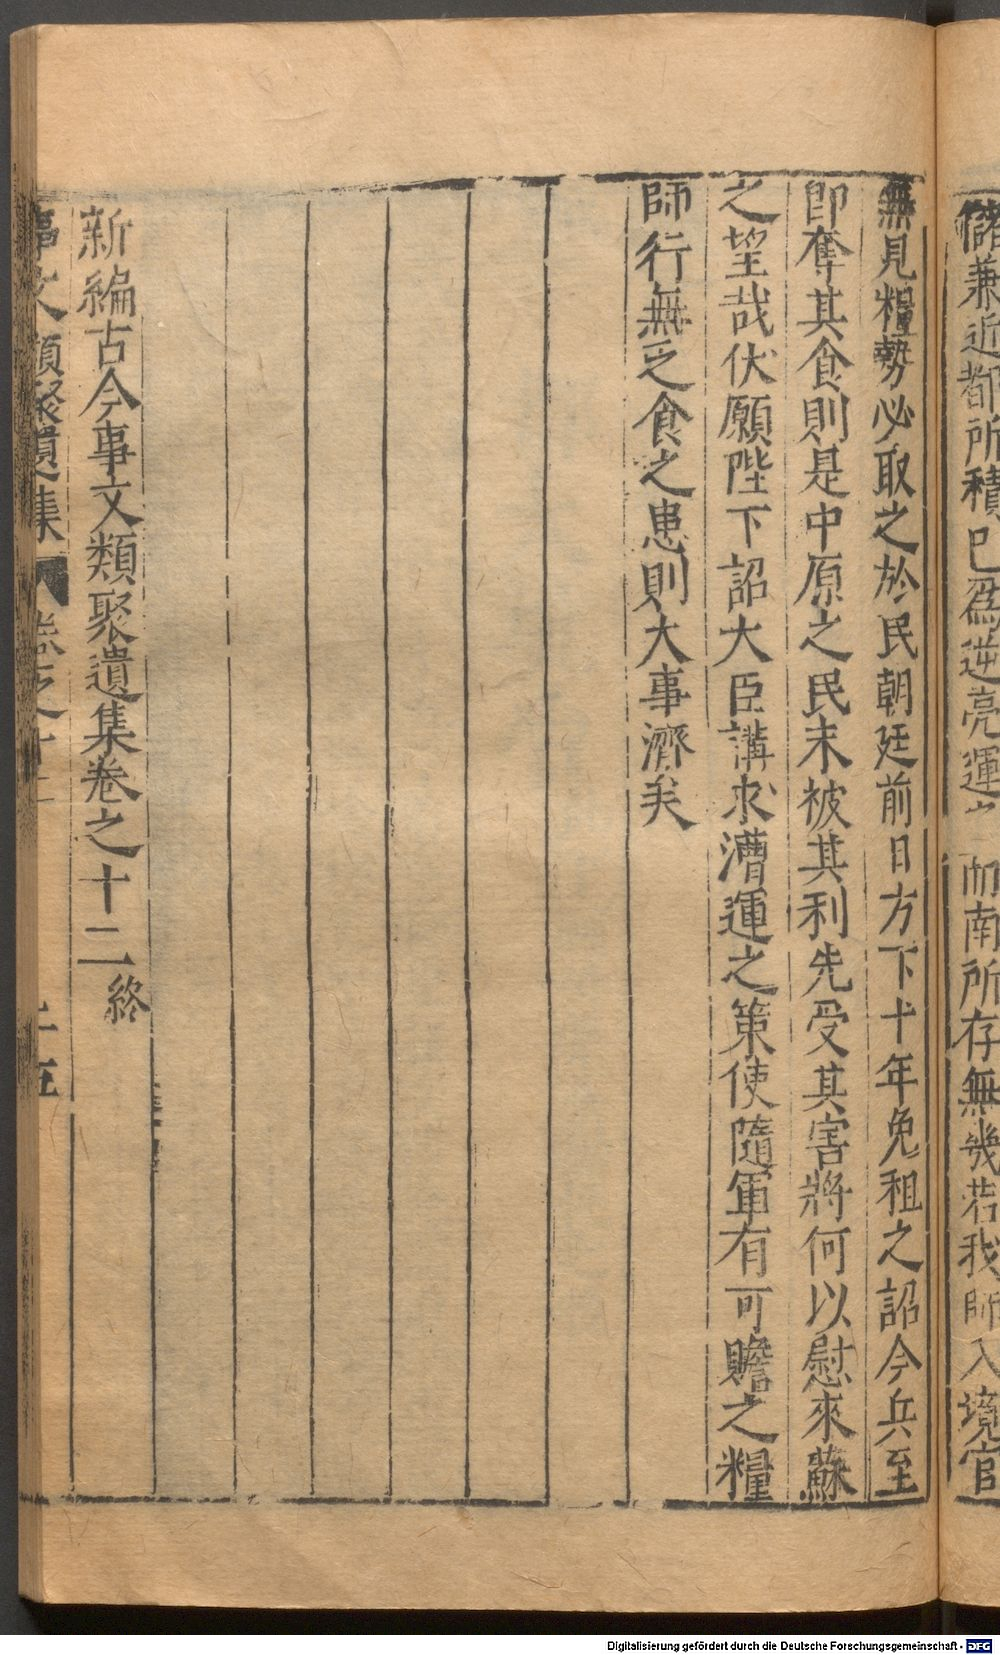 儲兼近都所積已爲逆亮運之而南所存無幾若我師入境官
無見糧勢必取之於民朝廷前日方下十年免租之詔今兵至
即奪其食則是中原之民未被其利先受其害將何以慰來蘇
之望哉伏願陛下詔大臣講求漕運之策使隨軍有可贍之糧
師行無乏食之患則大事濟矣
新編古今事文類聚遺集卷之十二終
事文類聚遺集 卷之十二 二五
Digitalisierung gefördert durch die Deutsche Forschungsgemeinschaft - DFG